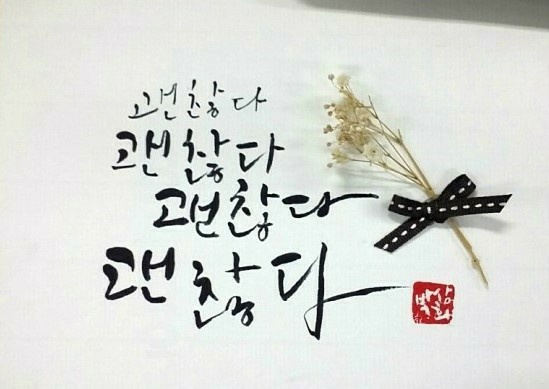 괜찮다
괜찮다
괜찮다
괜찮다